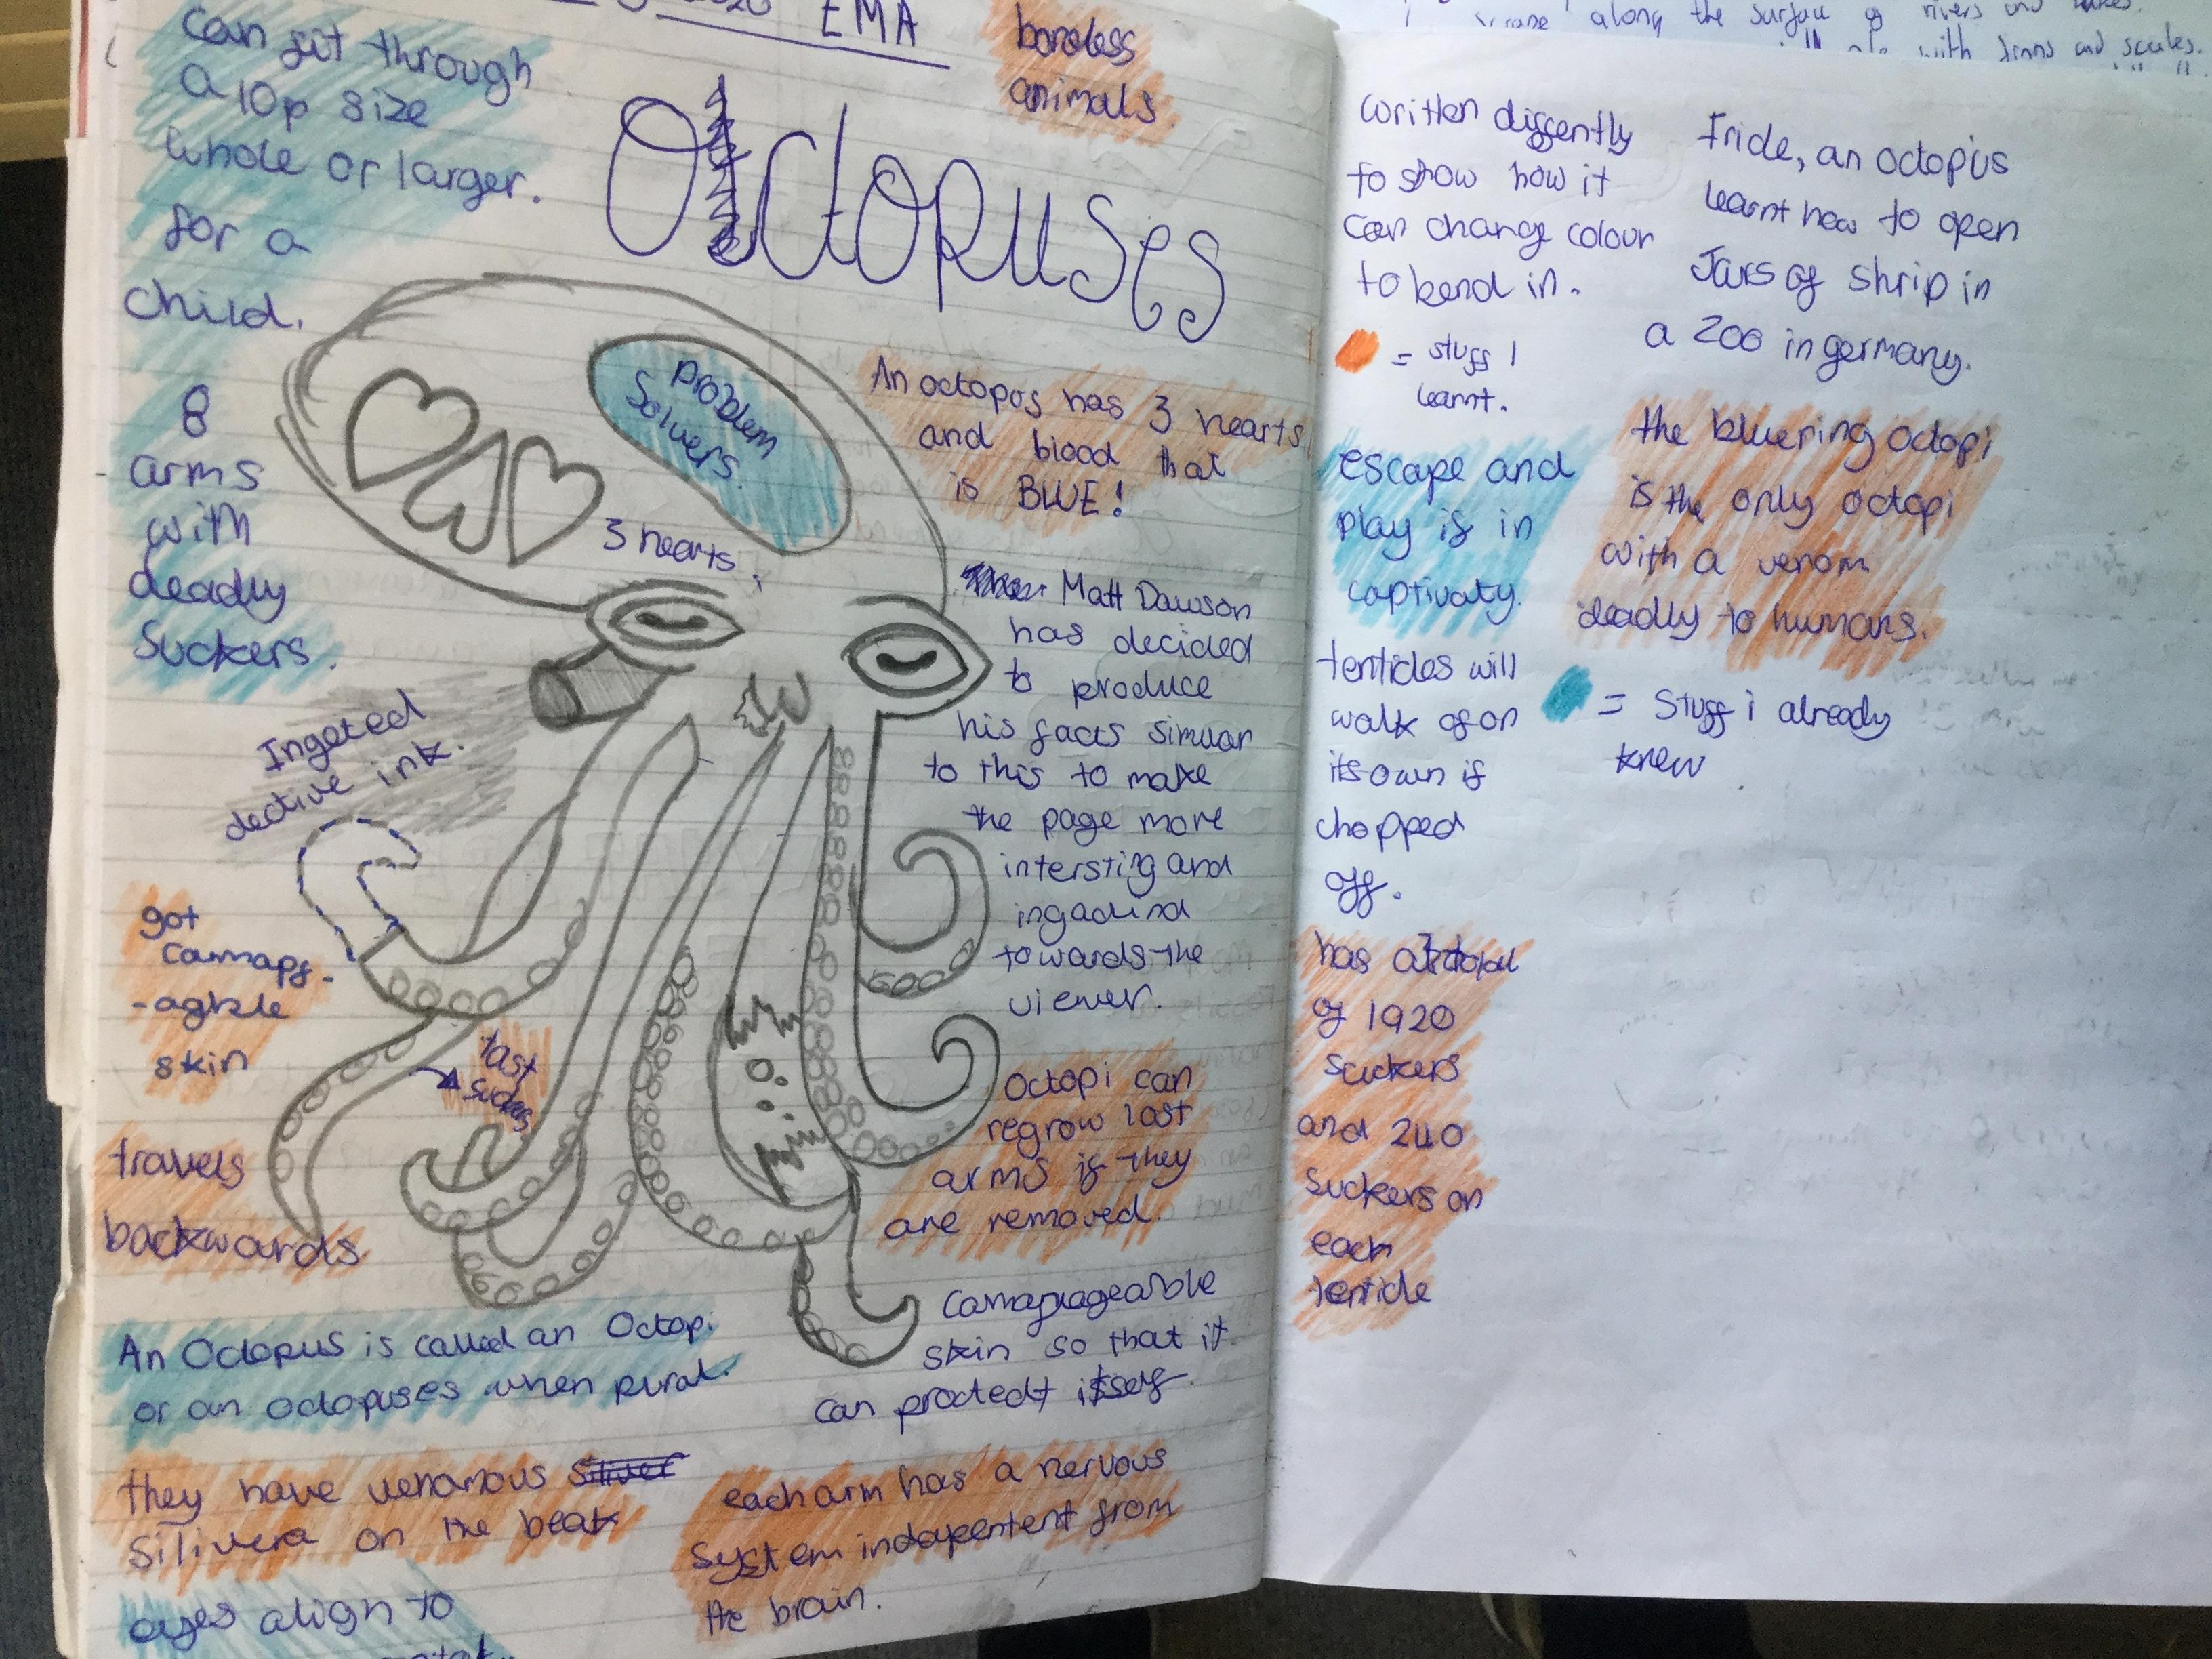 2020 EMA
boneless
animals.
Can fit through
a 10p size
whole or larger.
for a
child.
Octopuses
8
arms
with
deadly
suckers.
problem
solvers.
3 hearts.
An octopos has 3 hearts
and blood that
is BLUE!
Matt Dawson
has decided
to produce
his facts simular
to this to make
the page more
intersting and
ingadind
towards the
viewer.
Ingeted
dective ink.
got
camapf-
-agble
skin
tast
suckers
travels
backwards
Octopi can
regrow lost
arms if they
are removed.
Camafuageable
skin so that it
can protedt itself.
An Octopus is called an Octopi
or an octopuses when pural.
they have venamous
Silivera on the beak
each arm has a nervous
system indapentent from
the brain.
eyes align to
along the surface of rivers and lakes.
with finns and scales.
written diffently
to show how it
can change colour
to bend in.
= stuff I
learnt.
escape and
play if in
captivaty.
tenticles will
walk of on
its own if
chopped
off.
has a total
of 1920
suckers
and 240
suckers on
each
tenticle
Fride, an octopus
learnt how to open
Jars of shrip in
a Zoo in germany.
the bluering octopi
is the only octopi
with a venom
deadly to humans.
= Stuff i already
knew